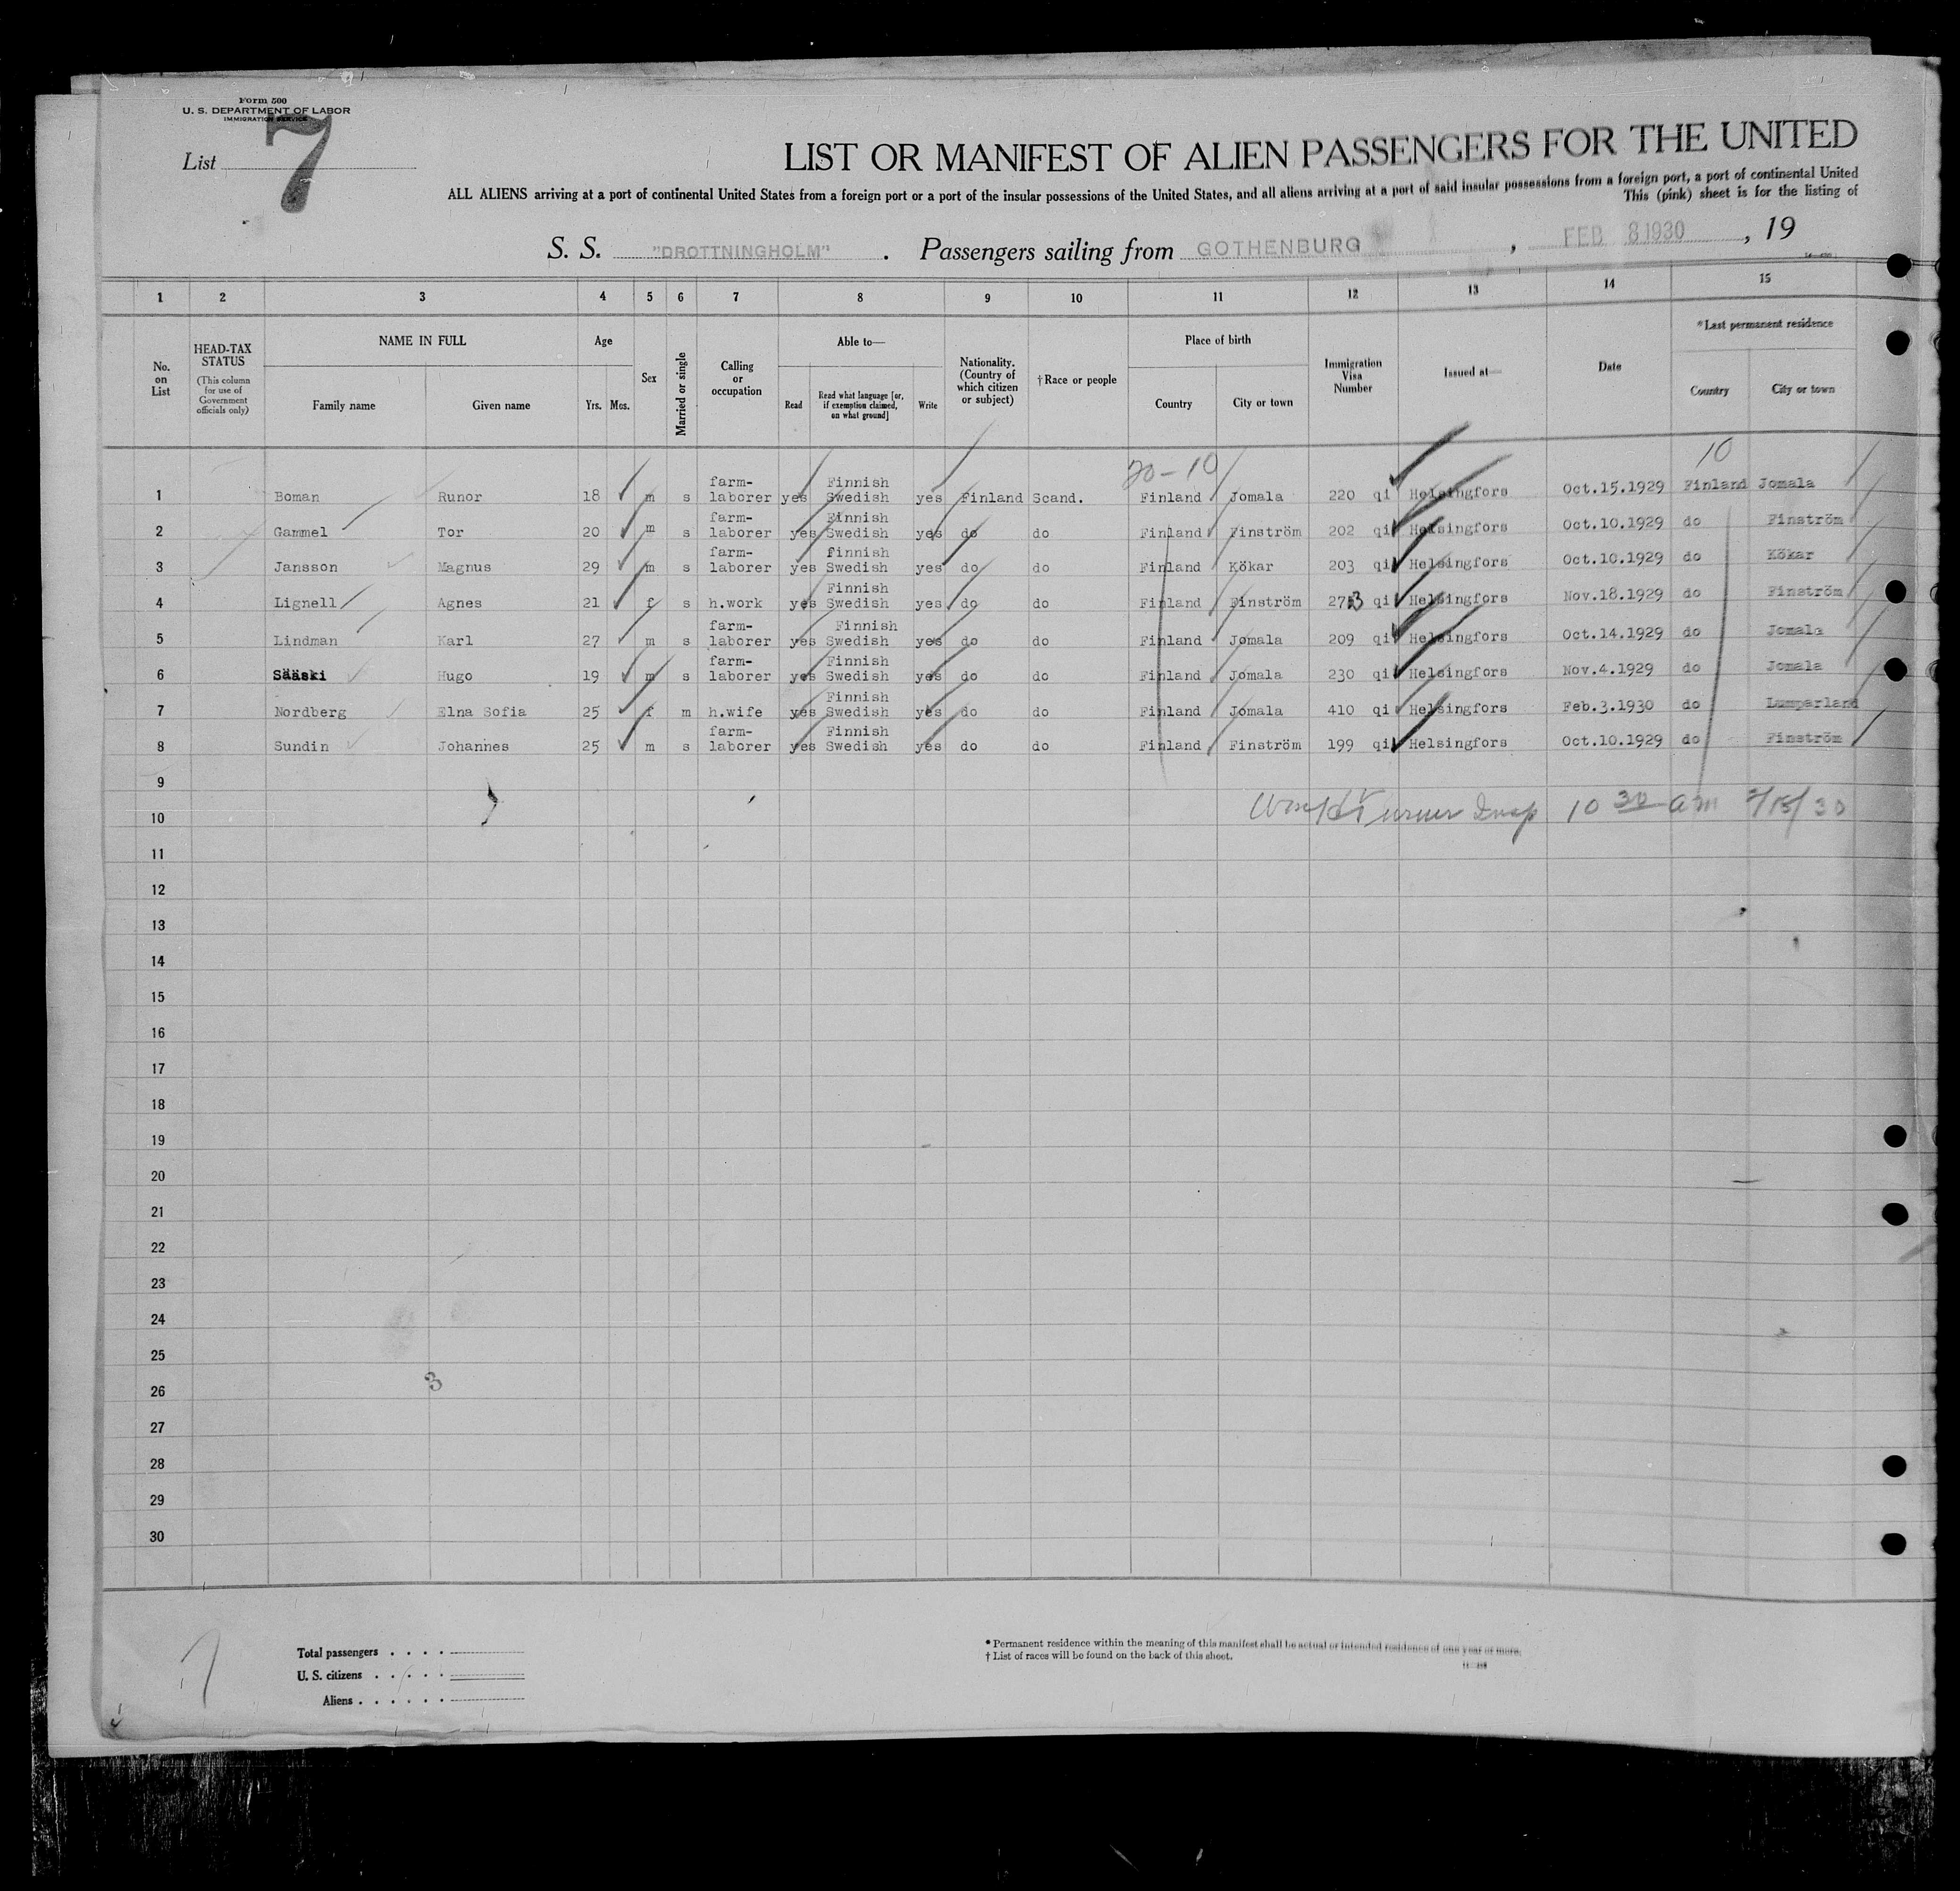 Form 500
U. S. DEPARTMENT OF LABOR
IMMIGRATION SERVICE
List 7
LIST OR MANIFEST OF ALIEN PASSENGERS FOR THE UNITED
ALL ALIENS arriving at a port of continental United States from a foreign port or a port of the insular possessions of the United States, and all aliens arriving at a port of said insular possessions from a foreign port, a port of continental United
This (pink) sheet is for the listing of
S. S. "DROTTNINGHOLM" . Passengers sailing from GOTHENBURG , FEB 8 1930 , 19
1 2 3 4 5 6 7 8 9 10 11 12 13 14 15
No. on List
HEAD-TAX STATUS
(This column for use of Government officials only)
NAME IN FULL
Family name Given name
Age
Yrs. Mos.
Sex
Married or single
Calling or occupation
Able to—
Read
Read what language [or, if exemption claimed, on what ground]
Write
Nationality. (Country of which citizen or subject)
†Race or people
Place of birth
Country City or town
Immigration Visa Number
Issued at—
Date
*Last permanent residence
Country City or town
20-10 10
1 Boman Runor 18 m s farm-laborer yes Finnish Swedish yes Finland Scand. Finland Jomala 220 qi Helsingfors Oct.15.1929 Finland Jomala
2 Gammel Tor 20 m s farm-laborer yes Finnish Swedish yes do do Finland Finström 202 qi Helsingfors Oct.10.1929 do Finström
3 Jansson Magnus 29 m s farm-laborer yes finnish Swedish yes do do Finland Kökar 203 qi Helsingfors Oct.10.1929 do Kökar
4 Lignell Agnes 21 f s h.work yes Finnish Swedish yes do do Finland Finström 273 qi Helsingfors Nov.18.1929 do Finström
5 Lindman Karl 27 m s farm-laborer yes Finnish Swedish yes do do Finland Jomala 209 qi Helsingfors Oct.14.1929 do Jomala
6 Sääski Hugo 19 m s farm-laborer yes Finnish Swedish yes do do Finland Jomala 230 qi Helsingfors Nov.4.1929 do Jomala
7 Nordberg Elna Sofia 25 f m h.wife yes Finnish Swedish yes do do Finland Jomala 410 qi Helsingfors Feb.3.1930 do Lumparland
8 Sundin Johannes 25 m s farm-laborer yes Finnish Swedish yes do do Finland Finström 199 qi Helsingfors Oct.10.1929 do Finström
9
Turner Insp 10 30 am 2/18/30
10
11
12
13
14
15
16
17
18
19
20
21
22
23
24
25
26
3
27
28
29
30
7
Total passengers . . . .
U. S. citizens . . . . .
Aliens . . . . . .
* Permanent residence within the meaning of this manifest shall be actual or intended residence of one year or more.
† List of races will be found on the back of this sheet.